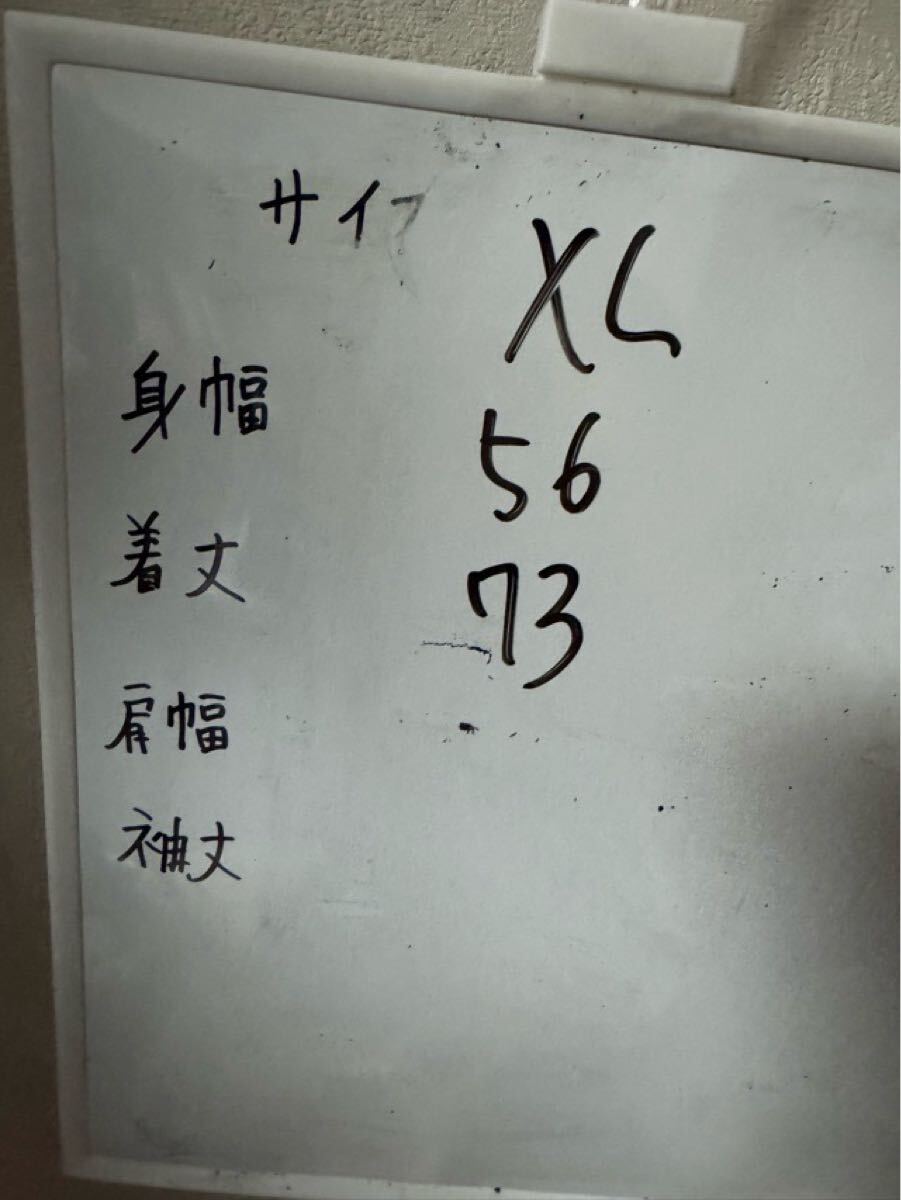 サイズ XL
身幅 56
着丈 73
肩幅
袖丈